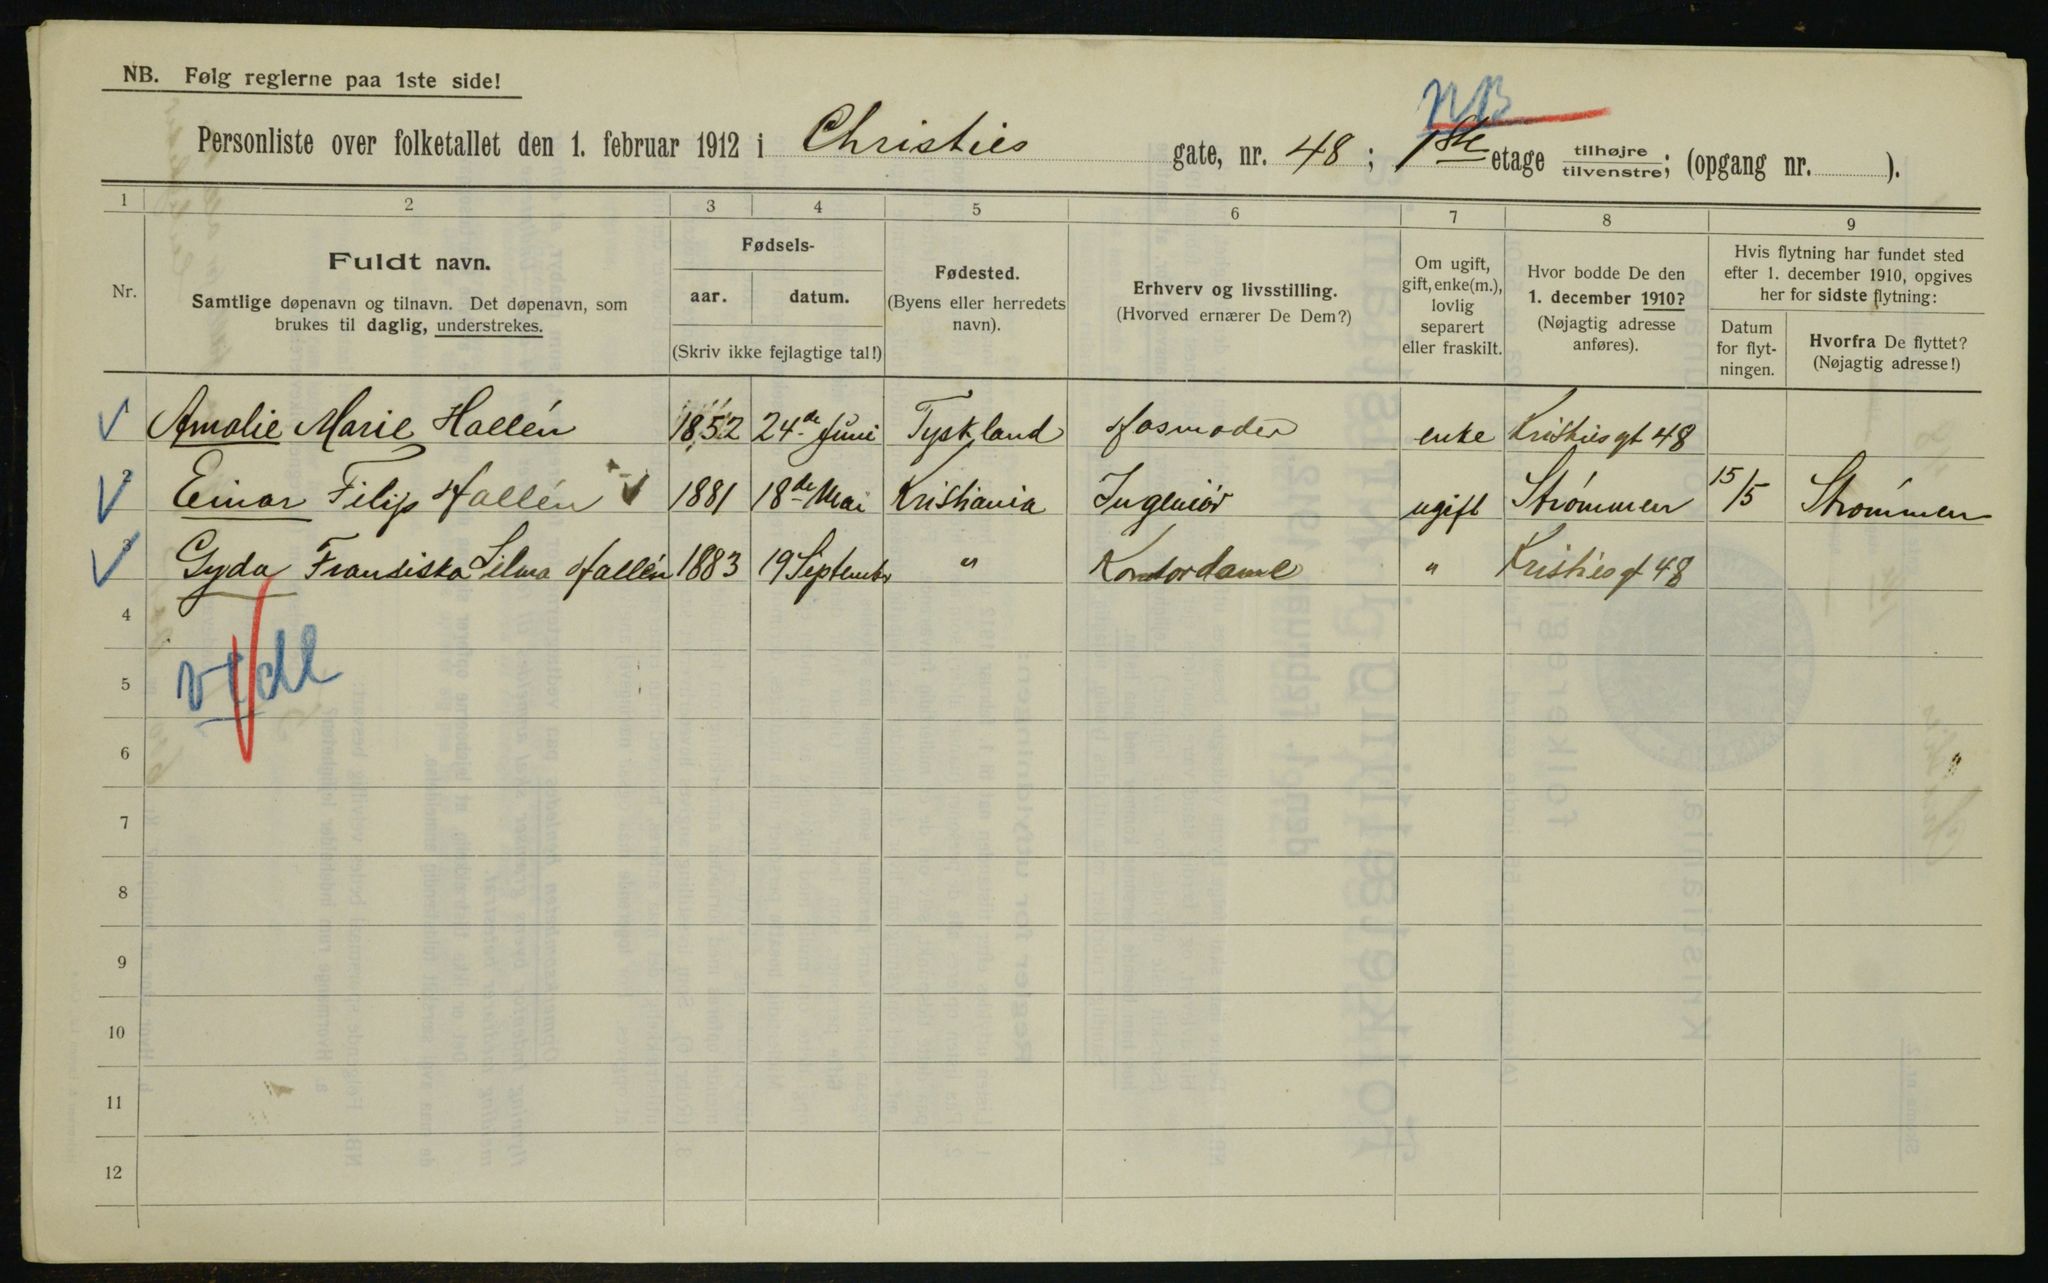 NB. Følg reglerne paa 1ste side!
NB
Personliste over folketallet den 1. februar 1912 i Christies gate, nr. 48; 1ste etage tilhøjre/tilvenstre; (opgang nr. ).
1 2 3 4 5 6 7 8 9
Nr.
Fuldt navn.
Samtlige døpenavn og tilnavn. Det døpenavn, som
brukes til daglig, understrekes.
Fødsels-
aar. datum.
(Skriv ikke fejlagtige tal!)
Fødested.
(Byens eller herredets
navn).
Erhverv og livsstilling.
(Hvorved ernærer De Dem?)
Om ugift,
gift, enke(m.),
lovlig
separert
eller fraskilt.
Hvor bodde De den
1. december 1910?
(Nøjagtig adresse
anføres).
Hvis flytning har fundet sted
efter 1. december 1910, opgives
her for sidste flytning:
Datum
for flyt-
ningen.
Hvorfra De flyttet?
(Nøjagtig adresse!)
1 Amalie Marie Hallén 1852 24de Juni Tyskland Husmoder enke Kristiesgt 48
2 Einar Filip Hallén 1881 18de Mai Kristiania Ingeniör ugift Strømmen 15/5 Strømmen
3 Gyda Fransiska Selma Hallén 1883 19 September " Kontordame " Kristiesgt 48
4
5
6
7
8
9
10
11
12